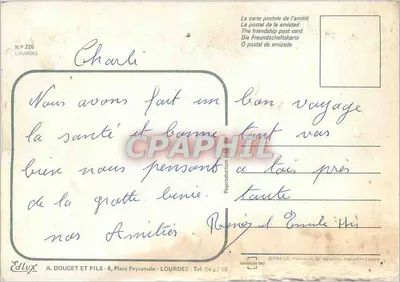 N.º 226
LOURDES
La carte postale de l'amitié
La postal de la amistad
The friendship post card
Die Freundschaftskarte
O postal de amizade
Charli
Nous avons fait un bon voyage
la santé et bonne tout vas
bien nous pensont a tois près
de la grotte benie. tante
nos Amitiés
CPAPHIL
Reproduction
Edlux
A. DOUCET ET FILS - 6, Place Peyramale - LOURDES - Tel.